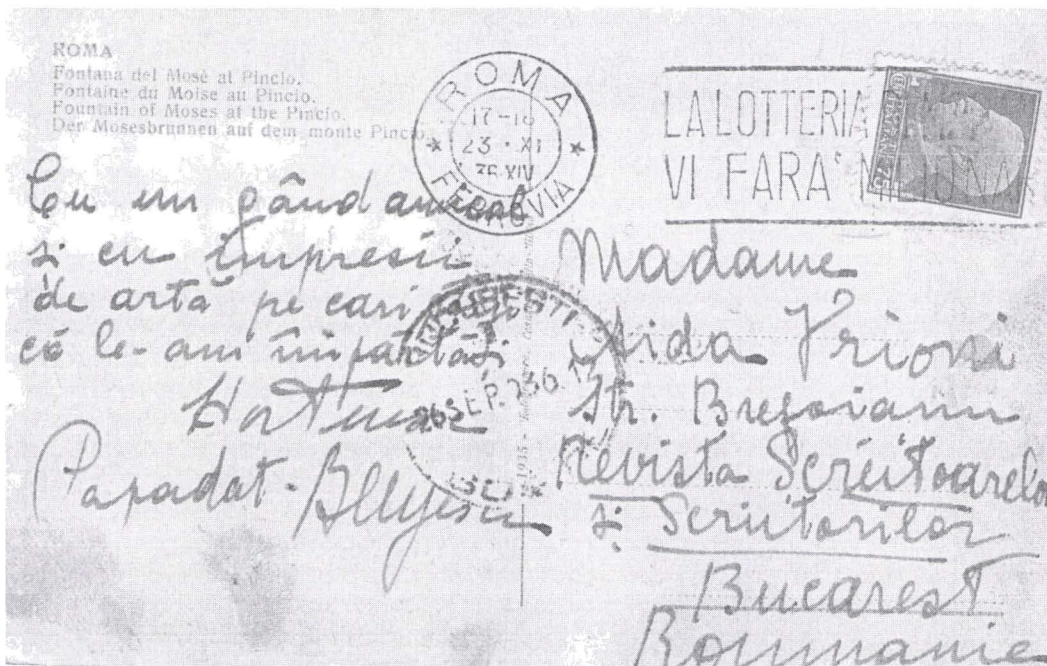 ROMA
Fontana del Mosè al Pincio.
Fontaine du Moïse au Pincio.
Fountain of Moses at the Pincio.
Der Mosesbrunnen auf dem monte Pincio.
ROMA
17-18
23·XI
36 XIV
FERROVIA
LA LOTTERIA
VI FARÀ
Cu un gând amical
și cu impresii
de artă pe cari
că le-am împărtăși
Hortensia
Papadat-Bengescu
BUCUREȘTI
26 SEP. 936. 17
Madame
Aida Vrioni
Str. Brezoianu
Revista Scriitoarelor
și Scriitorilor
Bucarest
Roumanie